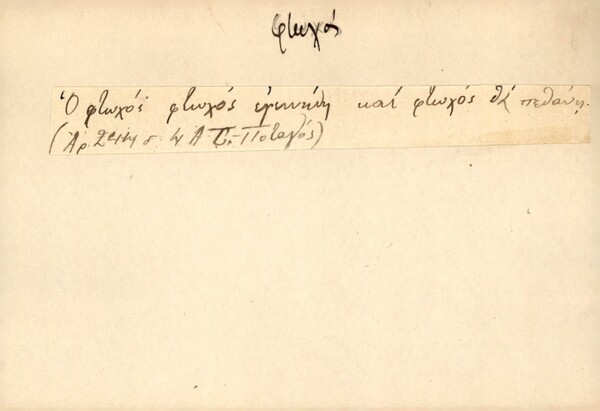 φτωχός
Ὁ φτωχός φτωχός ἐγεννήθη καί φτωχός θά πεθάνῃ.
(Ἀρ. σ. Ποταγός)